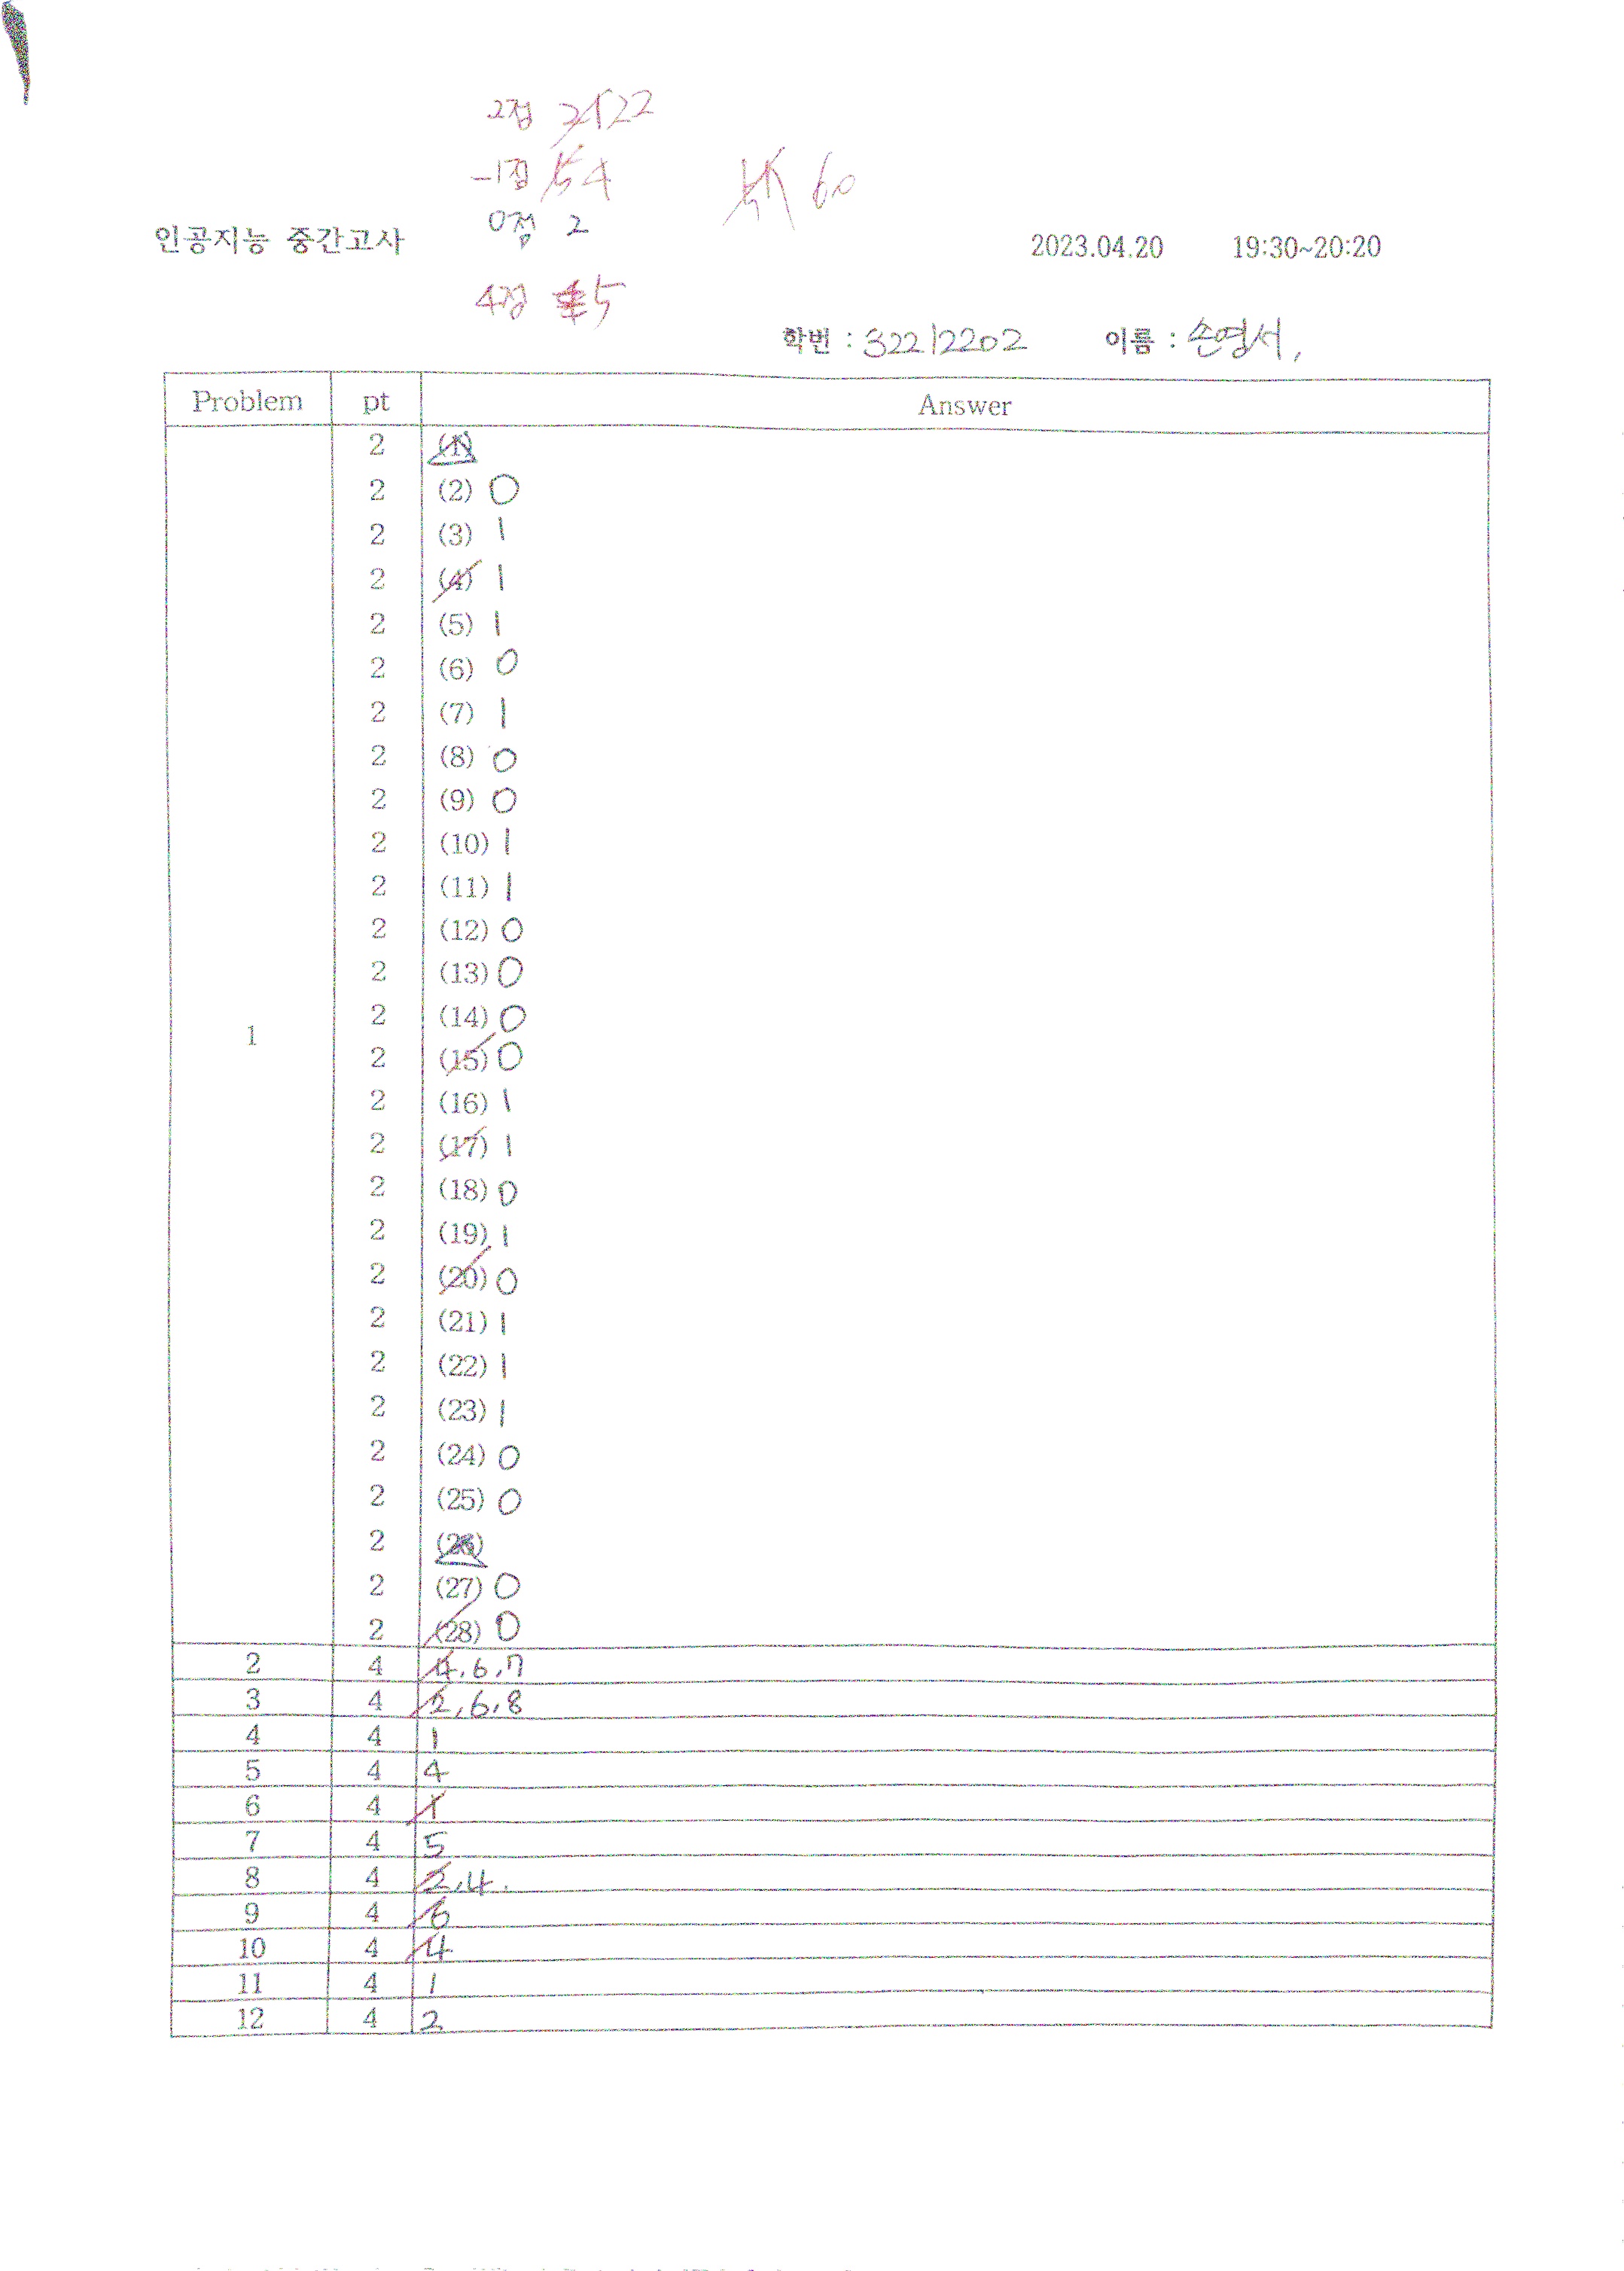 2점 22
-1점 4
60
0점 2
인공지능 중간고사 2023.04.20 19:30~20:20
4점 5
학번 : 32212202 이름 : 손영서
Problem pt Answer
1
2 (1)
2 (2) 0
2 (3) 1
2 (4) 1
2 (5) 1
2 (6) 0
2 (7) 1
2 (8) 0
2 (9) 0
2 (10) 1
2 (11) 1
2 (12) 0
2 (13) 0
2 (14) 0
2 (15) 0
2 (16) 1
2 (17) 1
2 (18) 0
2 (19) 1
2 (20) 0
2 (21) 1
2 (22) 1
2 (23) 1
2 (24) 0
2 (25) 0
2 (26)
2 (27) 0
2 (28) 0
2 4 4, 6, 7
3 4 2, 6, 8
4 4 1
5 4 4
6 4 1
7 4 5
8 4 2, 4.
9 4 6
10 4 4
11 4 1
12 4 2